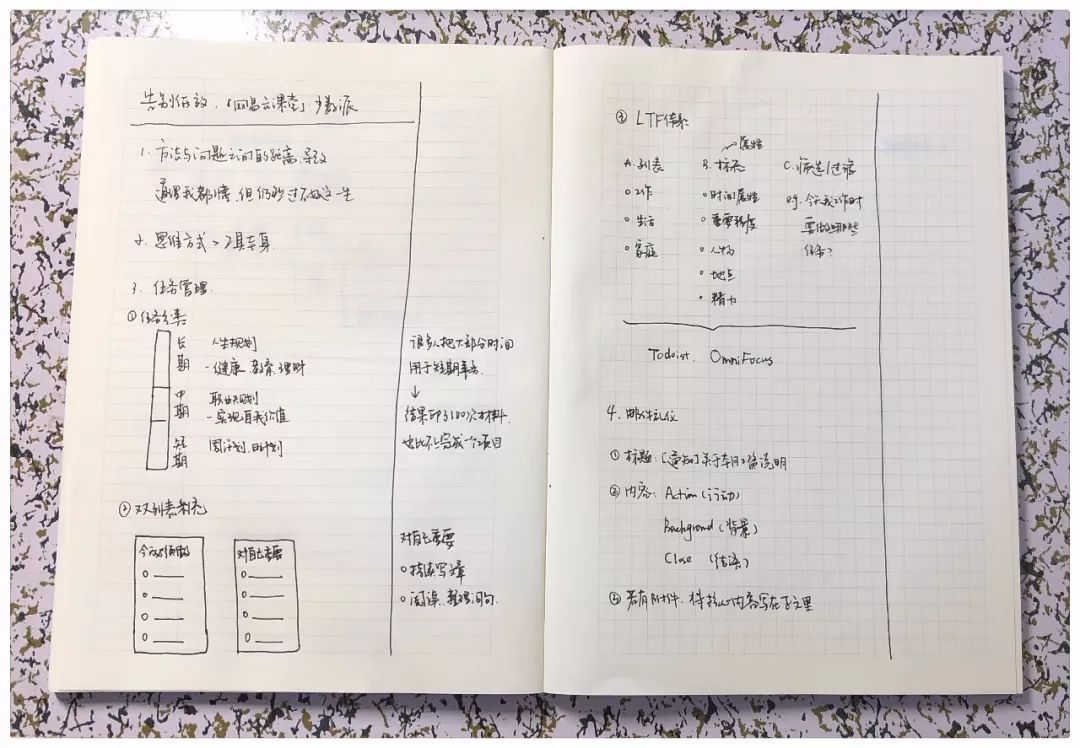 告别低效，「网易云课堂」少数派
1. 方法与问题之间的距离，导致
道理我都懂，但仍然过不好这一生
2. 思维方式 > 工具本身
3. 任务管理
① 任务分类
长期
人生规划
- 健康、教育、理财
中期
职业规划
- 实现自我价值
短期
周计划、日计划
很多人把大部分时间
用于短期事务
↓
结果印了100次材料，
也比不上完成一个项目
② 双列表制
今天必须做的
对自己重要
对自己重要
○ 持续写文章
○ 阅读、整理词句
③ LTF体系
属性
A. 列表
○ 工作
○ 生活
○ 家庭
B. 标签
• 时间属性
• 重要程度
• 人物
• 地点
• 精力
C. 筛选/过滤
eg. 今天我工作时
要做哪些
任务？
Todoist OmniFocus
4. 邮件礼仪
① 标题：[通知]关于说明
② 内容：Action（行动）
Background（背景）
Close（结语）
③ 若有附件，将核心内容写在正文里